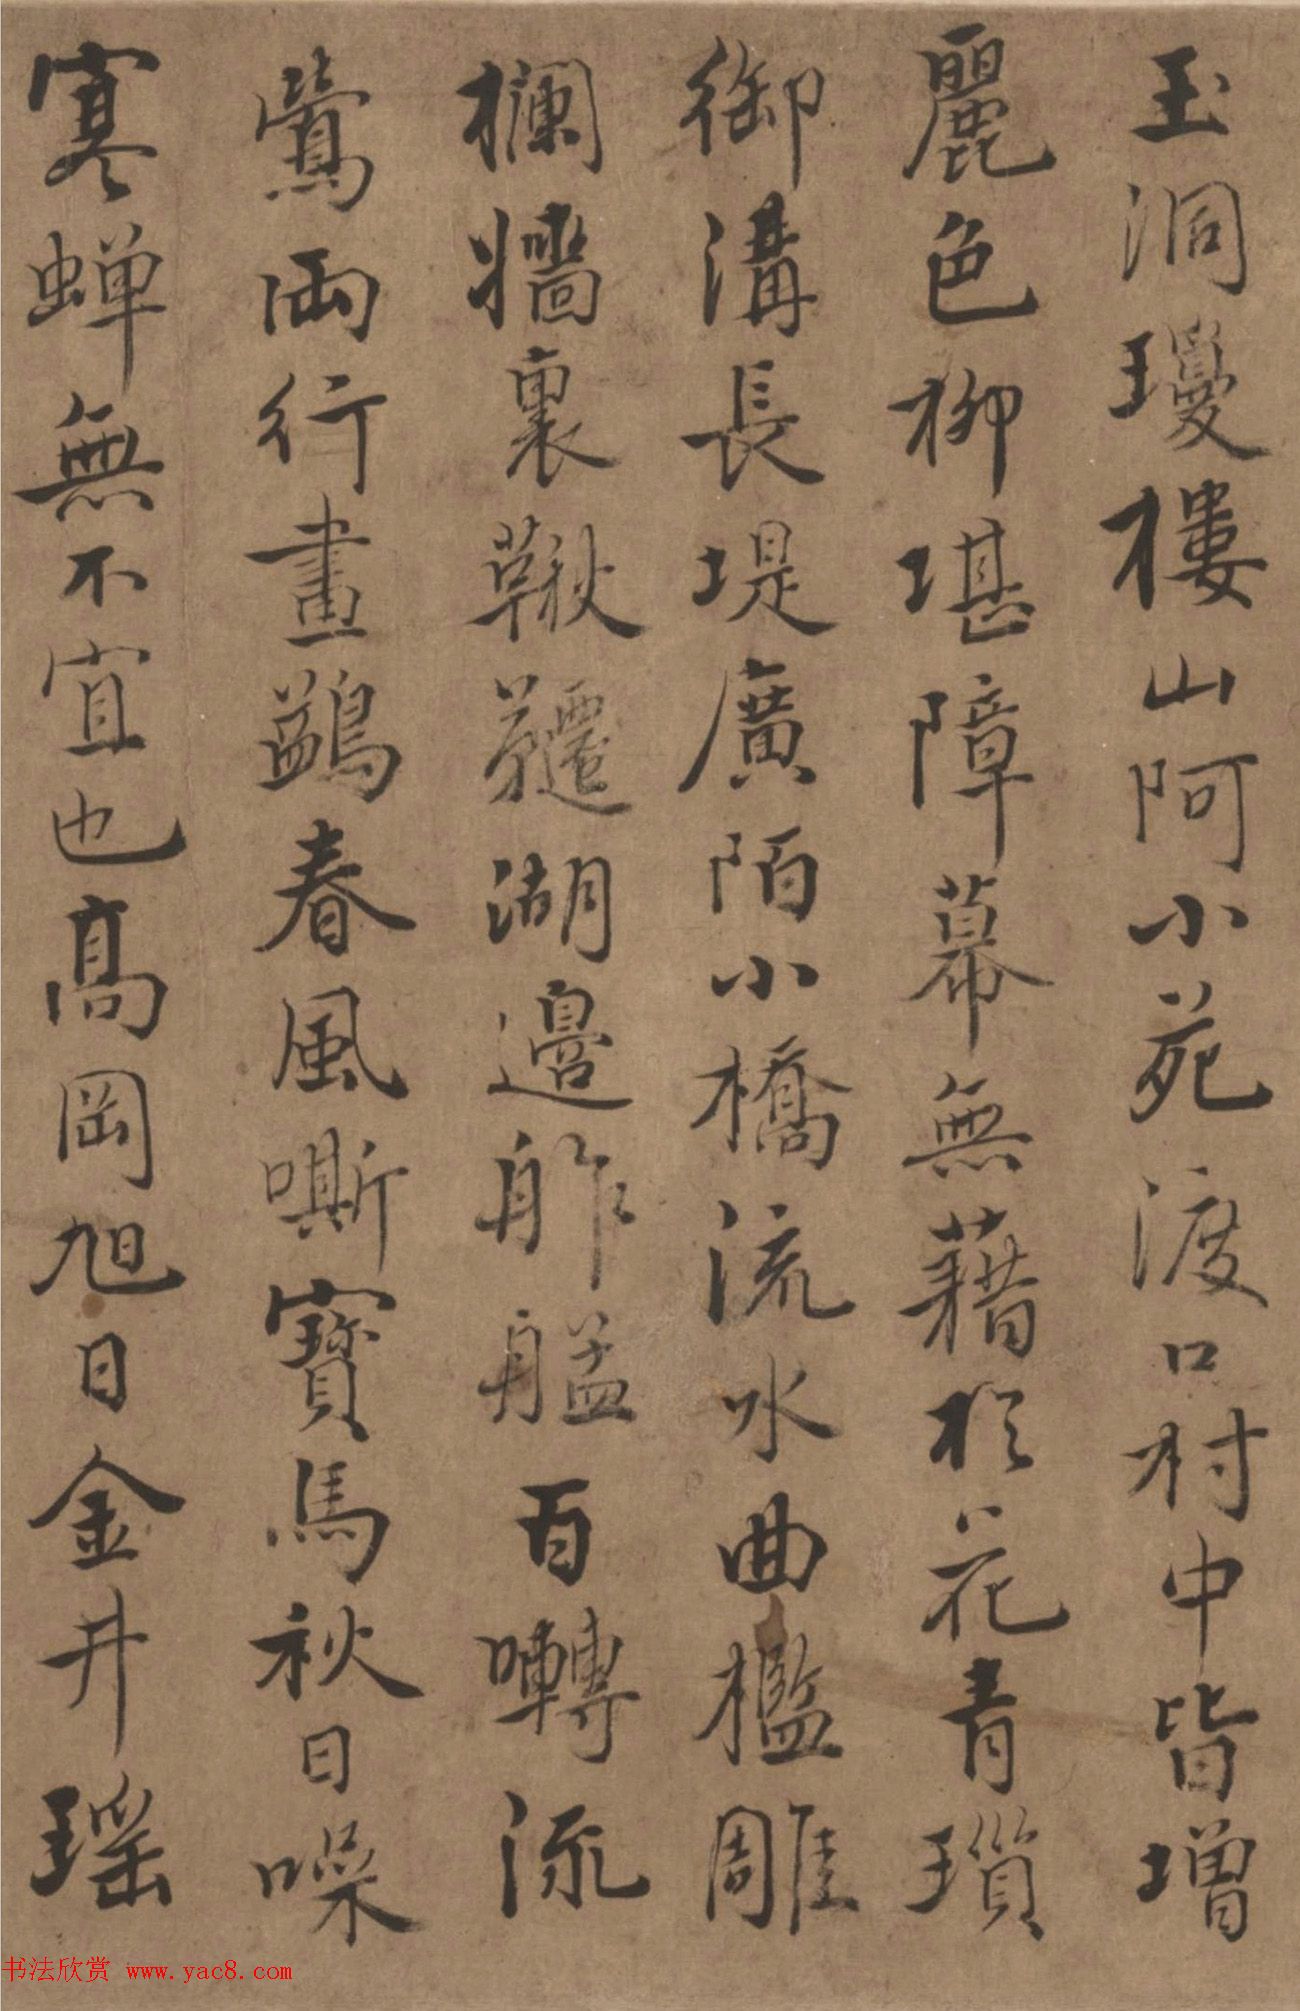 玉洞瓊樓山阿小苑渡口村中皆增
麗色柳堪障幕無藉於花青瑣
御溝長堤廣陌小橋流水曲檻雕
欄牆裏鞦韆湖邊舴艋百囀流
鶯兩行畫鷁春風嘶寶馬秋日噪
寒蟬無不宜也高岡旭日金井瑶
书法欣赏 www.yac8.com